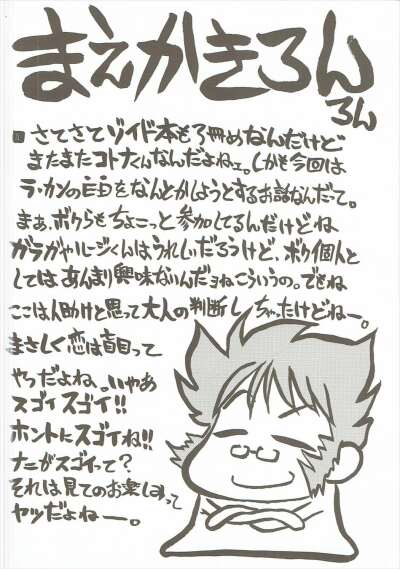 まえがきろん
ろん
■さてさてゾイド本も3冊めなんだけど
またまたコトナくんなんだよねェ。しかも今回は
ラ・カンの目をなんとかしようとするお話なんだって。
まぁ、ボクらもちょこっと参加してるんだけどね
ガラガやルージくんはうれしいだろうけど、ボク個人と
してはあんまり興味ないんだョねこういうの。でもね
ここは人助けと思って大人の判断しちゃったけどねー。
まさしく恋は盲目って
やつだよね。いやあ
スゴイスゴイ!!
ホントにスゴイね!!
ナニがスゴイって?
それは見てのお楽しみって
ヤツだよねー。